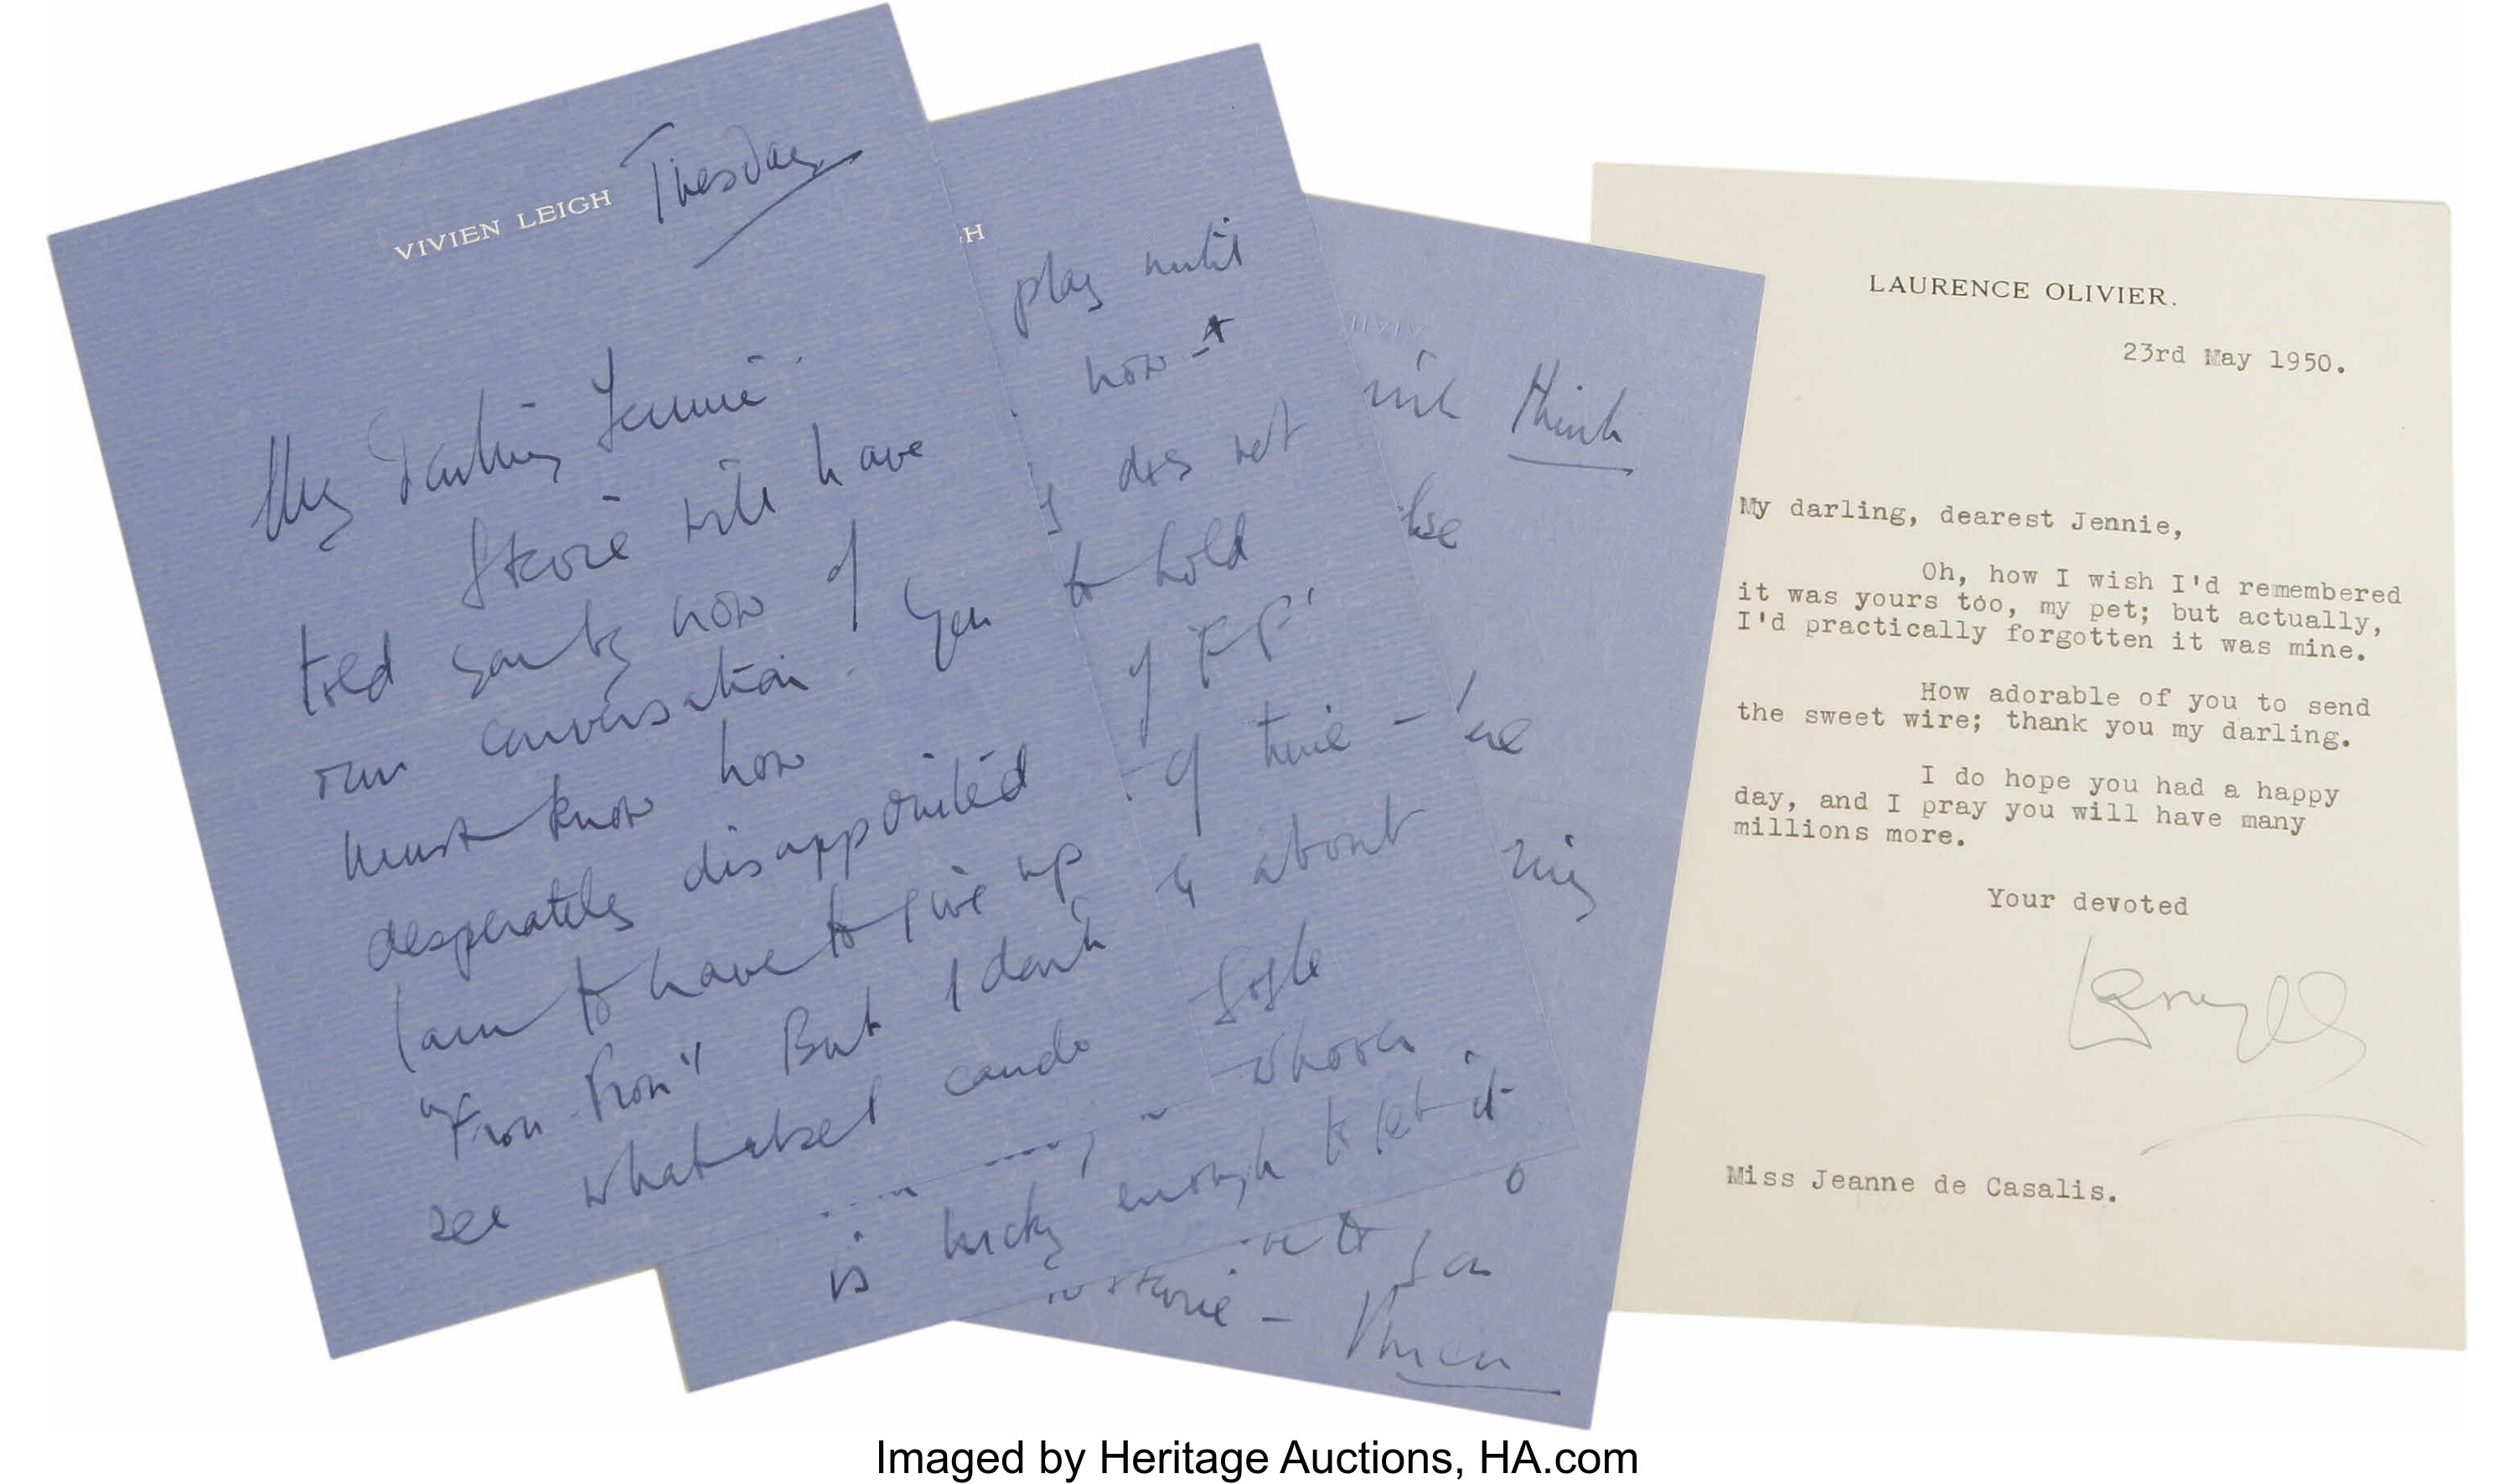 VIVIEN LEIGH Tuesday
My Darling Jennie
Stevie will have
told you by now of
our conversation. You
must know how
desperately disappointed
I am to have to give up
"Frou-Frou" But I don't
see what else I can do
H
play until
now
does not
to hold
of 'FF'
of time -
about
is lucky enough to let it
think
Stevie -
Vivien
LAURENCE OLIVIER.
23rd May 1950.
My darling, dearest Jennie,
Oh, how I wish I'd remembered
it was yours too, my pet; but actually,
I'd practically forgotten it was mine.
How adorable of you to send
the sweet wire; thank you my darling.
I do hope you had a happy
day, and I pray you will have many
millions more.
Your devoted
Miss Jeanne de Casalis.
Imaged by Heritage Auctions, HA.com